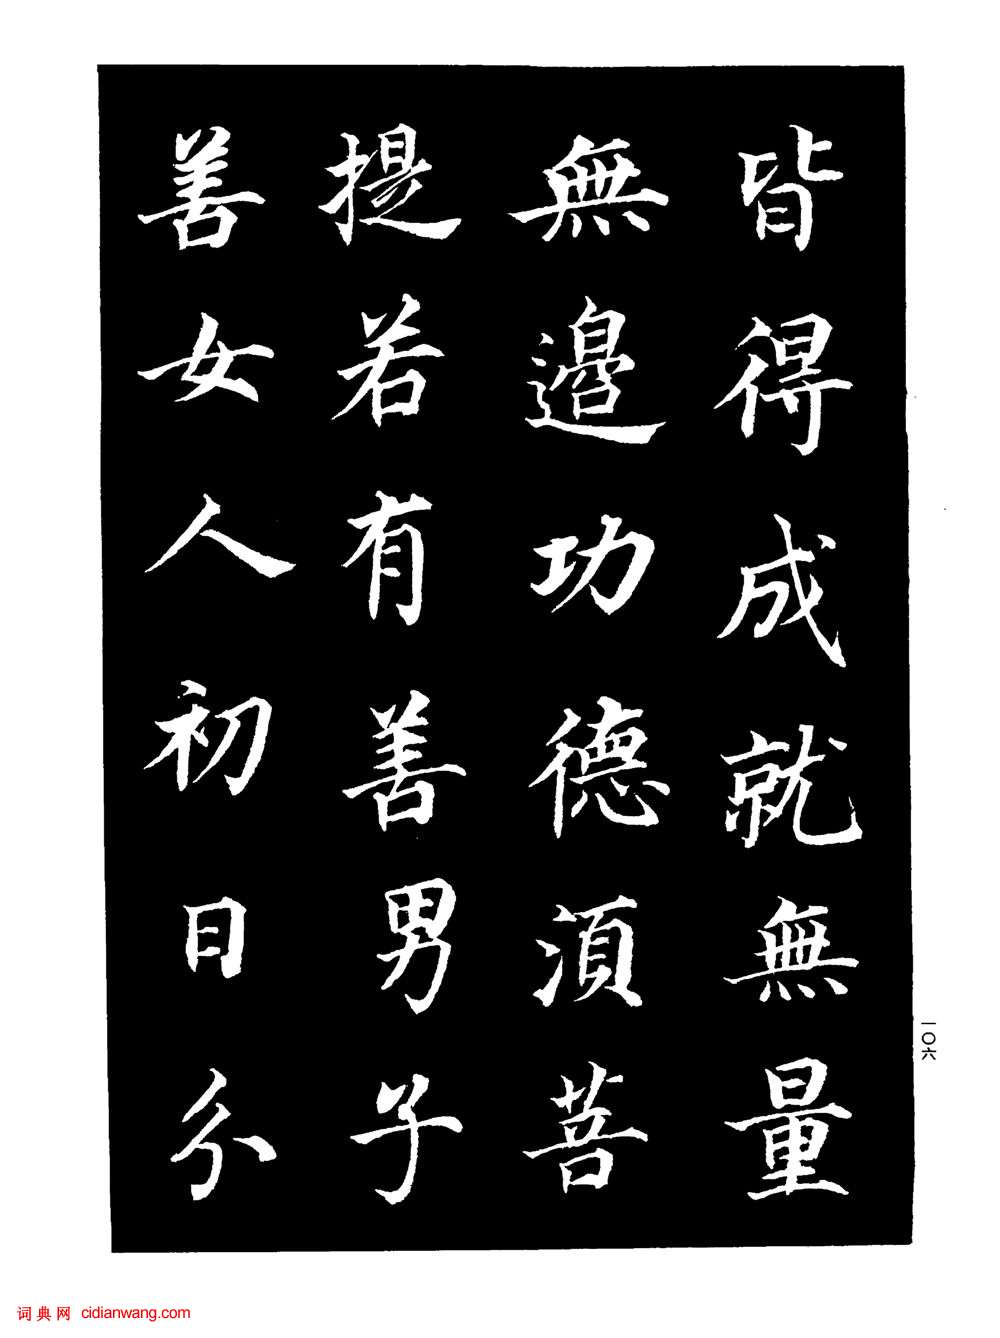 皆得成就無量
無邊功德湏菩
提若有善男子
善女人初日分
一〇六
词典网 cidianwang.com